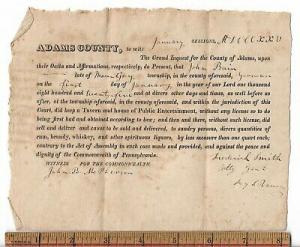 January SESSIONS, MDCCCXXV
ADAMS COUNTY, to wit:
The Grand Inquest for the County of Adams, upon
their Oaths and Affirmations, respectively, do Present, that John Bain
late of Menallen township, in the county aforesaid, yeoman
on the first day of January in the year of our Lord one thousand
eight hundred and twenty five and at divers other days and times, as well before as
after, at the township aforesaid, in the county aforesaid, and within the jurisdiction of this
Court, did keep a Tavern and house of Public Entertainment, without any license so as to
being first had and obtained according to law; and then and there, without such license, did
sell and deliver and cause to be sold and delivered, to sundry persons, divers quantities of
rum, brandy, whiskey, and other spirituous liquors, by less measure than one quart each;
contrary to the Act of Assembly in such case made and provided, and against the peace and
dignity of the Commonwealth of Pennsylvania.
WITNESS FOR THE COMMONWEALTH.
John B. McPherson
Frederick Smith
Atty Genl